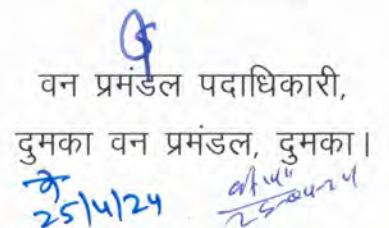 वन प्रमंडल पदाधिकारी,
दुमका वन प्रमंडल, दुमका।
25/4/24
25-04-24